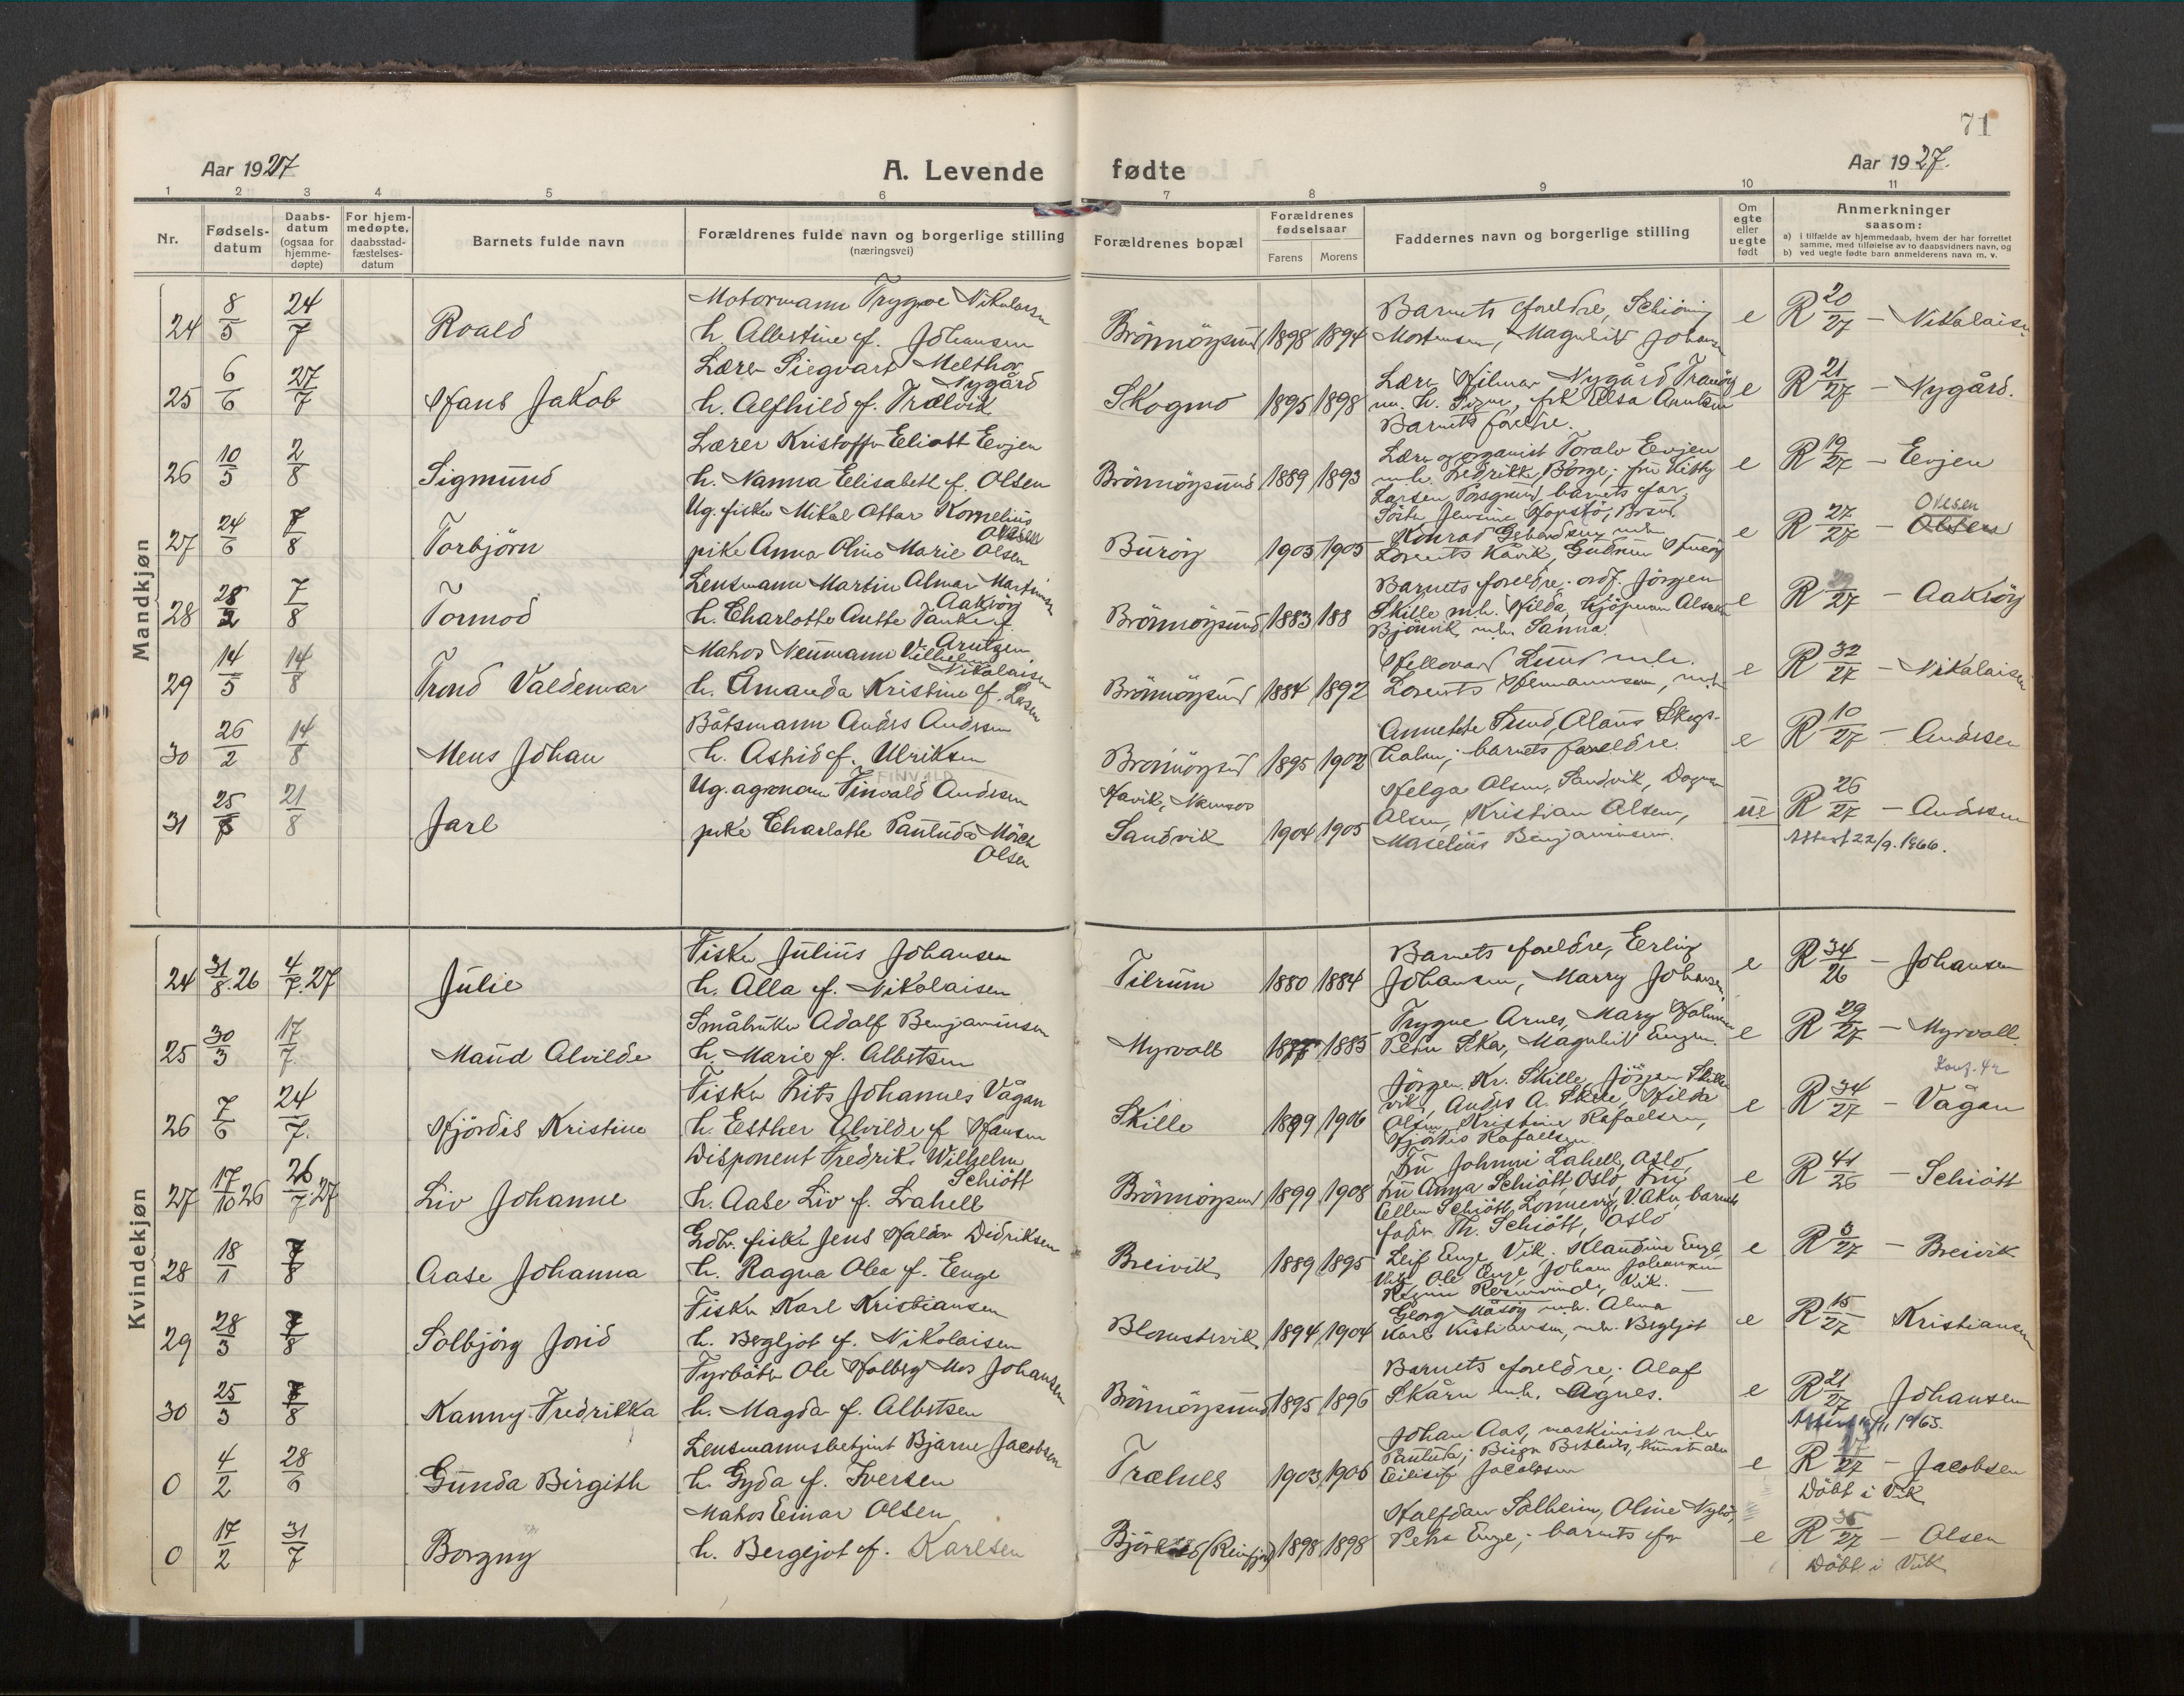 71
Aar 1927
A. Levende fødte
Aar 1927.
1 2 3 4 5 6 7 8 9 10 11
Nr.
Fødsels-
datum
Daabs-
datum
(ogsaa for
hjemme-
døpte)
For hjem-
medøpte,
daabsstad-
fæstelses-
datum
Barnets fulde navn
Forældrenes fulde navn og borgerlige stilling
(næringsvei)
Forældrenes bopæl
Forældrenes
fødselsaar
Farens Morens
Faddernes navn og borgerlige stilling
Om
egte
eller
uegte
født
Anmerkninger
saasom:
a) i tilfælde av hjemmedaab, hvem der har forrettet
samme, med tilføielse av to daabsvidners navn, og
b) ved uegte fødte barn anmelderens navn m. v.
Mandkjøn
24 8/5 24/7 Roald
Motormann Trygve Nikolaisen
h. Albertine f. Johansen
Brönnöysund 1898 1894
Barnets foreldre, Schiöning
Mortensen, Magnhild Johansen
e R 20/27 — Nikolaisen
25 6/6 27/7 Hans Jakob
Lærer Siegvart Melthor
Nygård
h. Alfhild f. Trælvik
Skogmo 1895 1898
Lærer Hilmar Nygård Tranöy
m. h. Signe, frk Elsa Arntsen
Barnets foreldre.
e R 21/27 — Nygård.
26 10/5 2/8 Sigmund
Lærer Kristoffer Eliott Evjen
h. Nanna Elisabeth f. Olsen
Brönnöysund 1889 1893
Lærer og organist Toralv Evjen
m. h. Fredrikke, Borge; fru Kitty
Larsen Porsgrund, barnets far,
e R 19/27 — Evjen
27 24/6 7/8 Torbjörn
Ug. fisker Mikal Ottar Kornelius
Olsen
pike Anna Oline Marie Olsen
Buröy 1905 1905
Konrad m.h.
Lorents Kåvik, Gudrun
e R 27/27 — Olsen
Olesen
28 28/2 7/8 Tormod
Lensmann Martin Almar Martinsen
Aakröy
h. Charlotte Anette Tanke f.
Arntzen
Brönnöysund 1883 188
Barnets foreldre; ordf. Jörgen
Skille m.h. Hilda, kjöpmann
Bjönvik m.h. Sanna.
e R 29/27 — Aakröy
29 14/5 14/8 Trond Valdemar
Matros Neumann Vilhelm
Nikolaisen
h. Amanda Kristine f. Larsen
Brönnöysund 1884 1892
Hellovard Lund m.h.
Lorents Hermannsen, m.h.
e R 32/27 — Nikolaisen
30 26/2 14/8 Mens Johan
Båtsmann Anders Andersen
h. Astrid f. Ulriksen
Brönnöysund 1895 1902
Annette Lund, Olaus Skogs-
holm; barnets foreldre.
e R 10/27 — Andersen
31 25/5 21/8 Jarl
FINVALD
Ug. agronom Finvald Andersen
pike Charlotte Pauluda Mörch
Olsen
Havik, Namsos
Sandvik 1904 1905
Helga Olsen, Sandvik, Dagmar
Olsen, Kristian Olsen,
Marelius Benjaminsen.
ue R 26/27 — Andersen
Attest 22/9. 1966.
Kvindekjøn
24 31/8.26 4/7.27 Julie
Fisker Julius Johansen
h. Alla f. Nikolaisen
Tilrum 1880 1884
Barnets foreldre, Erling
Johansen, Marry Johansen,
e R 34/26 — Johansen
25 30/3 17/7. Maud Alvilde
Småbruker Adolf Benjaminsen
h. Marie f. Albertsen
Myrvoll 1877 1885
Trygve Arnes, Mary Holmen
Peter Skar, Magnhild Eugen.
e R 29/27 — Myrvoll
26 7/6 24/7. Hjördis Kristine
Fisker Frits Johannes Vågan
h. Esther Alvilde f. Hansen
Skille 1899 1906
Jörgen Kr. Skille, Jörgen Skille
vik, Anders A. Skille, Hilda
Olsen, Kristine Rafaelsen,
Hjördis Rafaelsen.
e R 34/27 — Vågan
27 17/10 26 26/7.27 Liv Johanne
Disponent Fredrik Wilhelm
Schiött
h. Aase Liv f. Lahell
Brönnöysund 1899 1908
Fru Johnni Lahell, Oslo,
fru Anna Schiött, Oslo, Fru
Ellen Schiött, V. Aker, barnets
fader Th. Schiött, Oslo
e R 41/26 — Schiött
28 18/1 7/8 Aase Johanna
Gdbr. fisker Jens Haldor Didriksen
h. Ragna Olea f. Enge
Breivik 1889 1895
Leif Enge, Vik. Klaudine Enge,
Vik, Ole Enge, Johan Johansen
Rosenvinde, Vik.
e R 3/27 — Breivik
29 28/3 7/8 Solbjörg Jorid
Fisker Karl Kristiansen
h. Bergljot f. Nikolaisen
Blomstervik 1894 1904
Georg Måsöy m.h. Alma
Karl Kristiansen, m.h. Bergljot
e R 15/27 Kristiansen
30 25/3 7/8 Kanny Fredrikka
Fyrböter Ole Holberg Mos Johansen
h. Magda f. Albertsen
Brönnöysund 1895 1896
Barnets foreldre; Olaf
Skårn m.h. Agnes.
e R 21/27 Johansen
0 4/2 28/6 Gunda Birgith
Lensmannsbetjent Bjarne Jacobsen
h. Gyda f. Iversen
Trælnes 1903 1906
Johan Aas, maskinist m.h.
Paulida;
Jacobsen
e R 27/27 — Jacobsen
Döbt i Vik
0 17/2 31/7 Borgny
Matros Einar Olsen
h. Bergljot f. Karlsen
1898 1898
Halfdan Solheim, Oline Nybö,
Petra Enge; barnets far
e R 35/27 — Olsen
Döbt i Vik